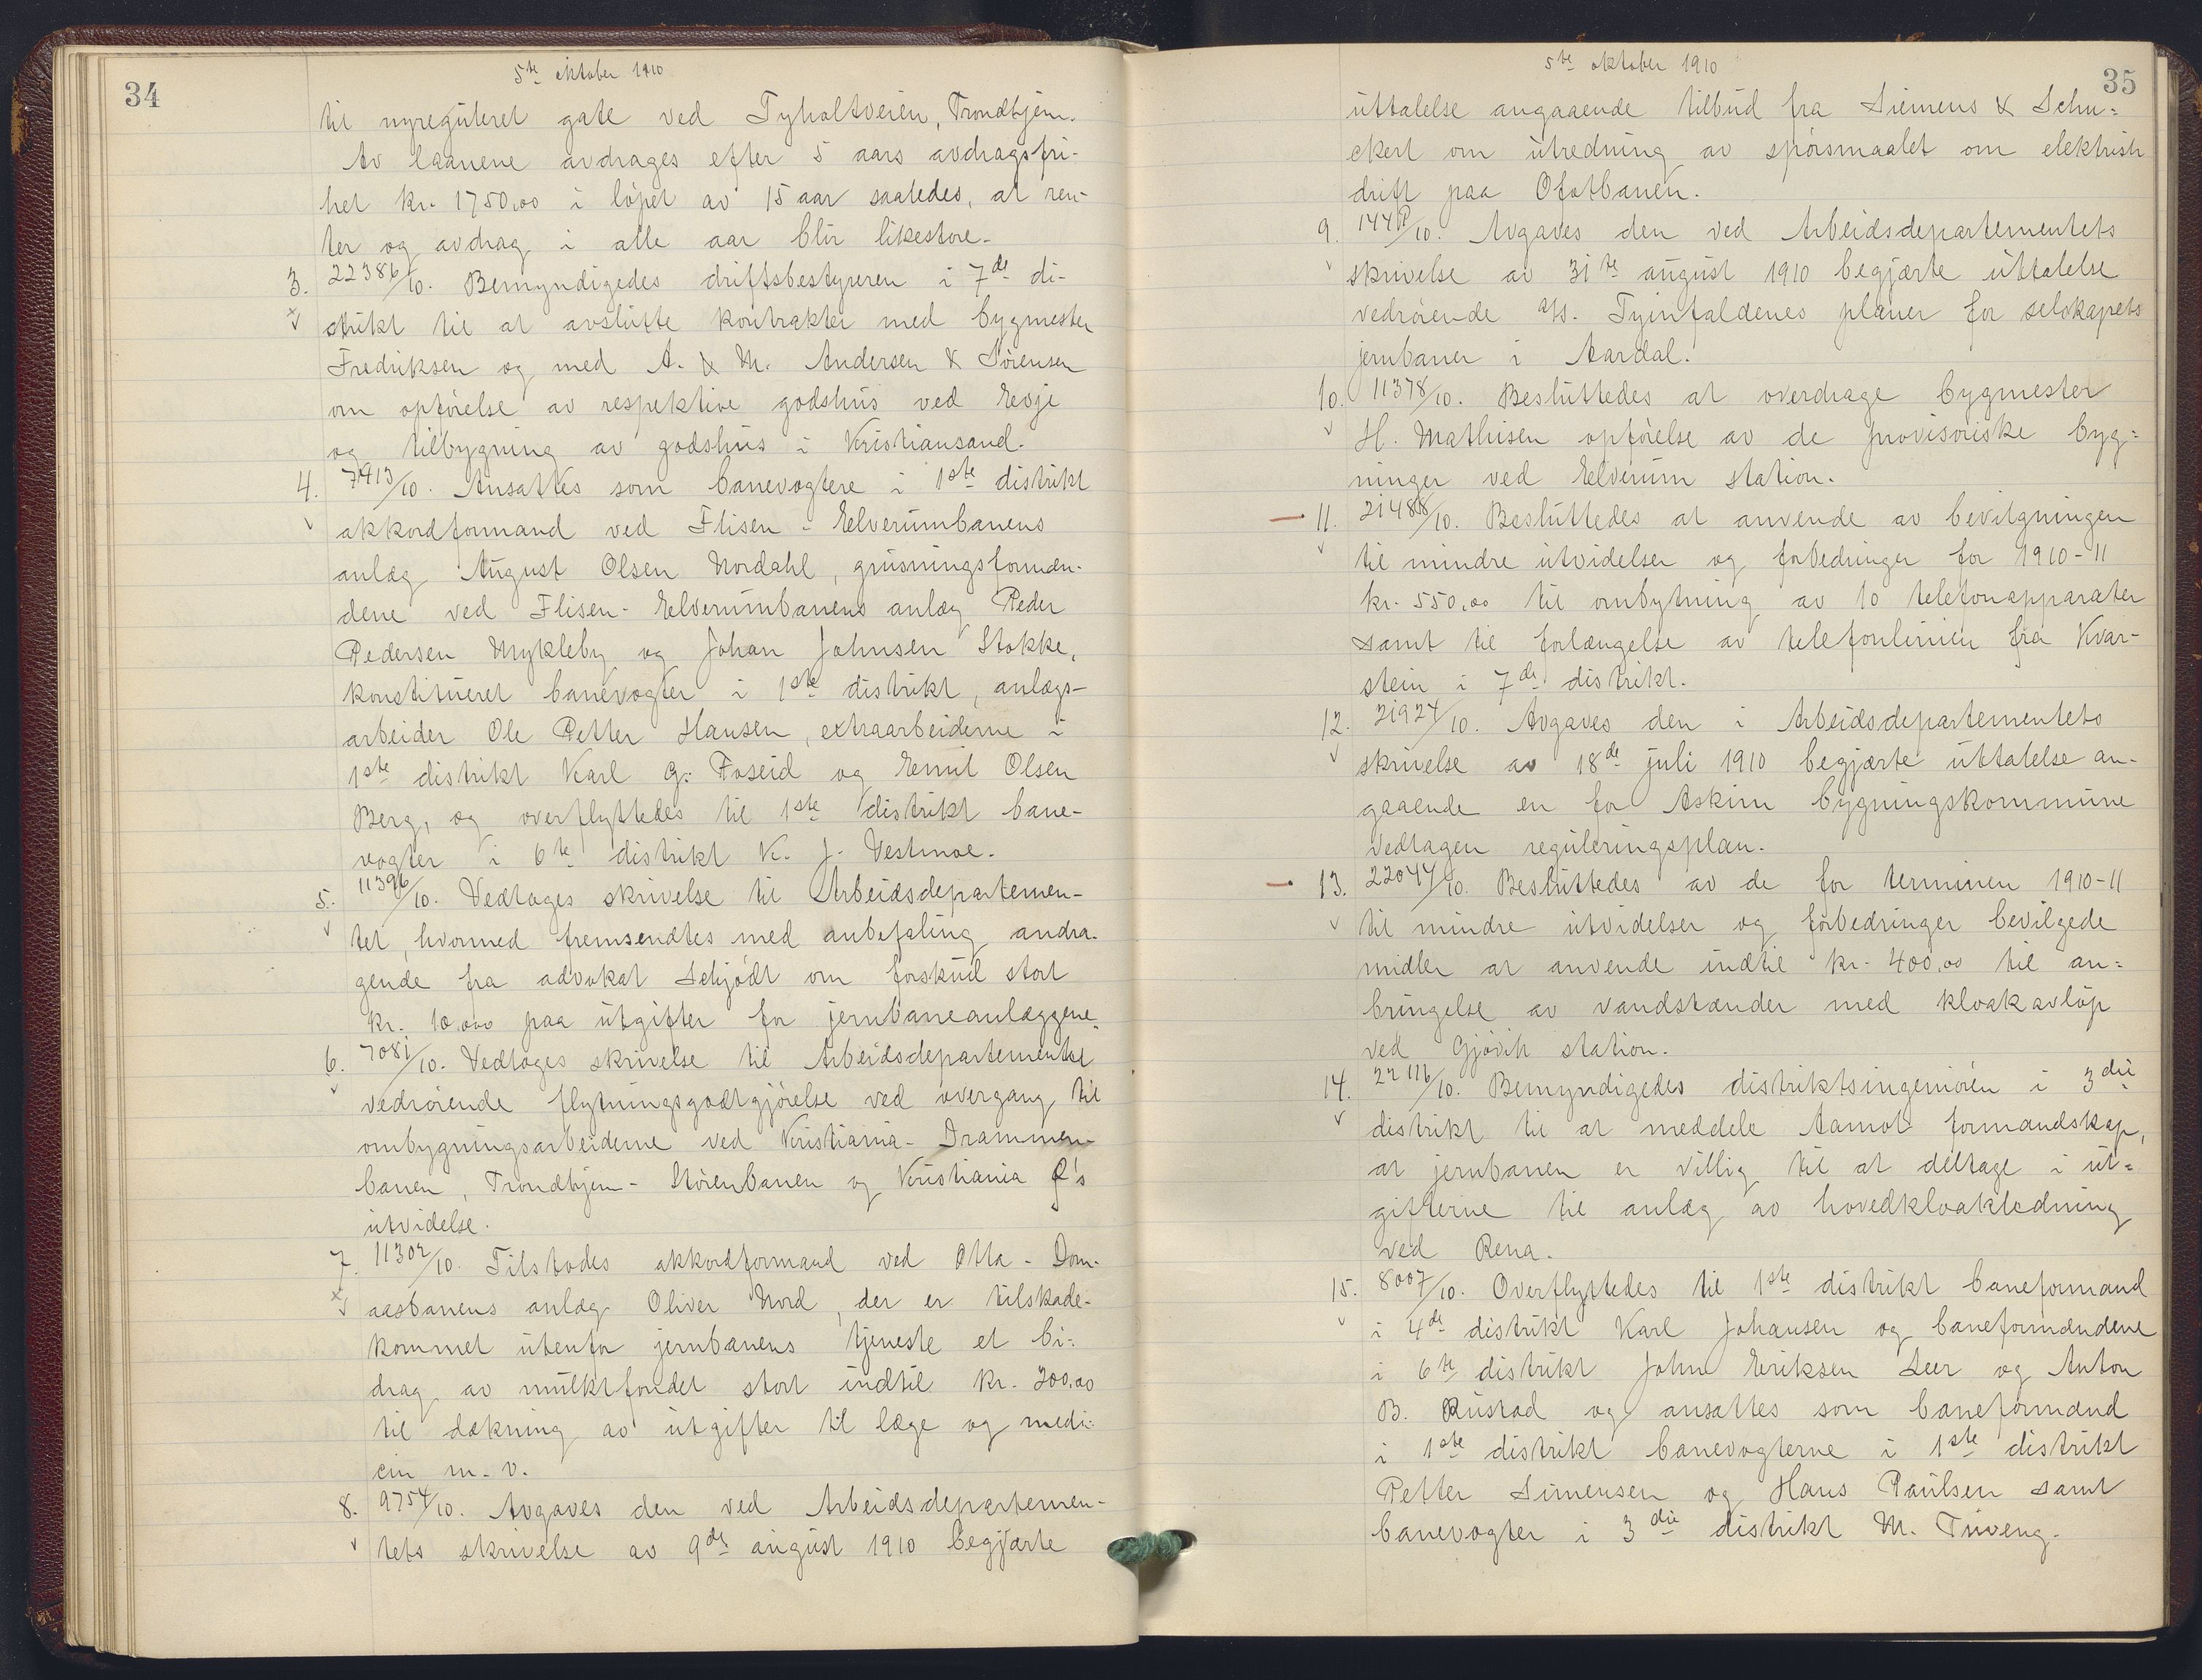 34
5te oktober 1910
til nyreguleret gate ved Tyholtveien, Trondhjem.
Av laanene avdrages efter 5 aars avdragsfri-
het kr. 1750,00 i løpet av 15 aar saaledes, at ren-
ter og avdrag i alle aar blir likestore.
3. 22386/10. Bemyndigedes driftsbestyreren i 7de di-
strikt til at avslutte kontrakter med bygmester
Fredriksen og med A. & M. Andersen & Sørensen
om opførelse av respektive godshus ved Evje
og tilbygning av godshus i Kristiansand.
4. 7913/10. Ansattes som banevogtere i 1ste distrikt
akkordformand ved Flisen - Elverumbanens
anlæg August Olsen Nordahl, grusningsformæn-
dene ved Flisen - Elverumbanens anlæg Peder
Pedersen Mykleby og Johan Johnsen Stokke,
konstitueret banevogter i 1ste distrikt, anlægs-
arbeider Ole Petter Hansen, extraarbeiderne i
1ste distrikt Karl G. Foseid og Emil Olsen
Berg, og overflyttedes til 1ste distrikt bane-
vogter i 6te distrikt K. J. Vestmoe.
5. 11396/10. Vedtoges skrivelse til Arbeidsdepartemen-
tet, hvormed fremsendtes med anbefaling andra-
gende fra advokat Schjødt om forskud stort
kr. 10,000 paa utgifter for jernbaneanlæggene.
6. 7081/10. Vedtoges skrivelse til Arbeidsdepartementet
vedrørende flytningsgodtgjørelse ved overgang til
ombygningsarbeiderne ved Kristiania - Drammen-
banen, Trondhjem - Størenbanen og Kristiania Ø's
utvidelse.
7. 11302/10. Tilstodes akkordformand ved Otta - Dom-
aasbanens anlæg Oliver Nord, der er tilskade-
kommet utenfor jernbanens tjeneste et bi-
drag av mulktfondet stort indtil kr. 200,00
til dækning av utgifter til læge og medi-
cin m. v.
8. 9754/10. Avgaves den ved Arbeidsdepartemen-
tets skrivelse av 9de august 1910 begjærte
35
5te oktober 1910
uttalelse angaaende tilbud fra Siemens & Schu-
ckert om utredning av spørsmaalet om elektrisk
drift paa Ofotbanen.
9. /10. Avgaves den ved Arbeidsdepartementets
skrivelse av 31te august 1910 begjærte uttalelse
vedrørende a/s. Tyinfaldenes planer for selskapets
jernbaner i Aardal.
10. 11378/10. Besluttedes at overdrage bygmester
H. Mathisen opførelse av de provisoriske byg-
ninger ved Elverum station.
11. 21488/10. Besluttedes at anvende av bevilgningen
til mindre utvidelser og forbedringer for 1910-11
kr. 550,00 til ombytning av 10 telefonapparater
samt til forlængelse av telefonlinien fra Kvar-
stein i 7de distrikt.
12. 21924/10. Avgaves den i Arbeidsdepartementets
skrivelse av 18de juli 1910 begjærte uttalelse an-
gaaende en for Askim bygningskommune
vedtagen reguleringsplan.
13. 22044/10. Besluttedes av de for terminen 1910-11
til mindre utvidelser og forbedringer bevilgede
midler at anvende indtil kr. 400,00 til an-
bringelse av vandstænder med kloakavløp
ved Gjøvik station.
14. 22116/10. Bemyndigedes distriktsingeniøren i 3die
distrikt til at meddele Aamot formandskap,
at jernbanen er villig til at deltage i ut-
gifterne til anlæg av hovedkloakledning
ved Rena.
15. 8007/10. Overflyttedes til 1ste distrikt baneformand
i 4de distrikt Karl Johansen og baneformændene
i 6te distrikt John Eriksen Leer og Anton
B. Rustad og ansattes som baneformænd
i 1ste distrikt banevogterne i 1ste distrikt
Petter Simensen og Hans Paulsen samt
banevogter i 3die distrikt M. Tuveng.